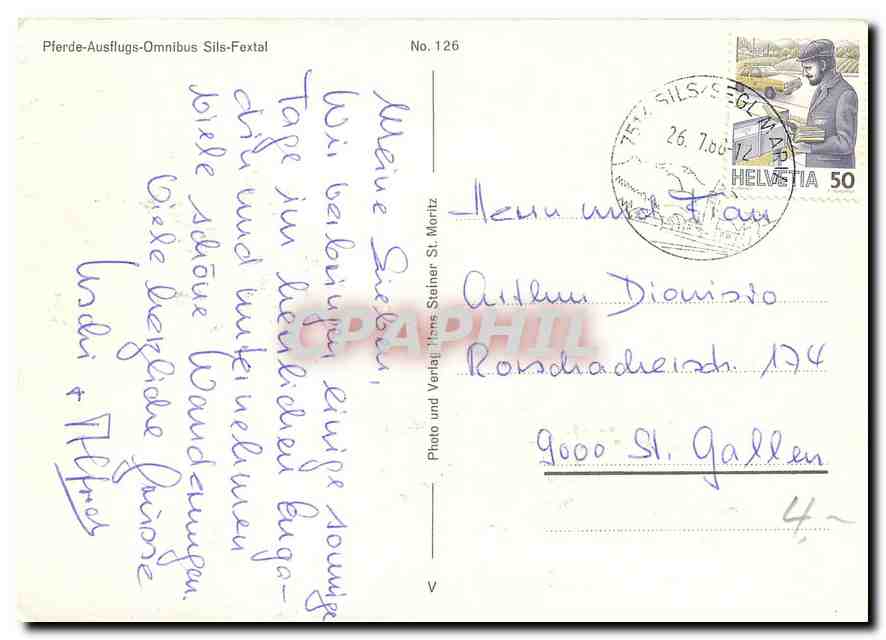 Pferde-Ausflugs-Omnibus Sils-Fextal
No. 126
Meine Lieben,
Wir verbringen einige sonnige
Tage im herrlichen Enga-
din und unternehmen
viele schöne Wanderungen.
Viele herzliche Grüsse
Uschi + Alfred
Photo und Verlag Hans Steiner St. Moritz
V
7514 SILS/SEGL MARIA
26. 7.88-12
HELVETIA 50
Herrn und Frau
Arthur Dionisio
Rorschacherstr. 174
9000 St. Gallen
4,-
CPAPHIL